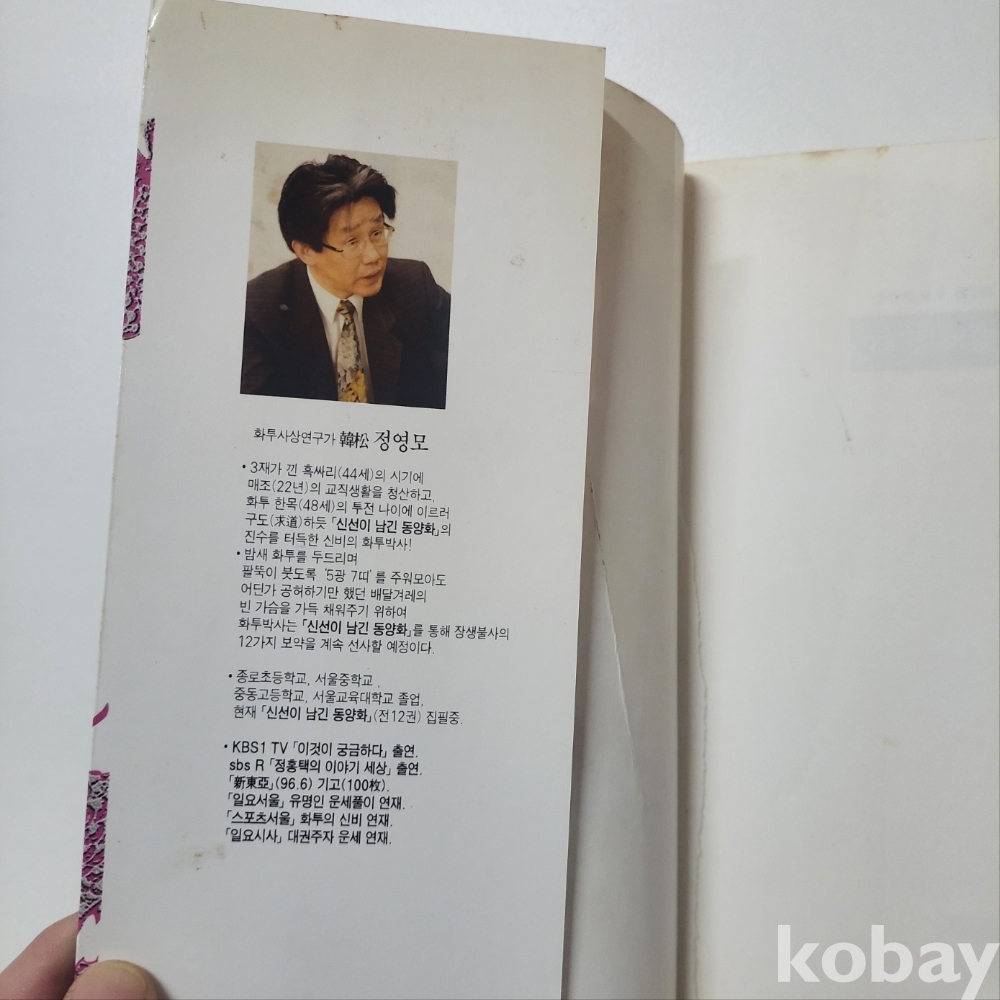 화투사상연구가 韓松 정영모
• 3재가 낀 흑싸리(44세)의 시기에
매조(22년)의 교직생활을 청산하고,
화투 한목(48세)의 투전 나이에 이르러
구도(求道)하듯 「신선이 남긴 동양화」의
진수를 터득한 신비의 화투박사!
• 밤새 화투를 두드리며
팔뚝이 붓도록 '5광 7띠'를 주워모아도
어딘가 공허하기만 했던 배달겨레의
빈 가슴을 가득 채워주기 위하여
화투박사는 「신선이 남긴 동양화」를 통해 장생불사의
12가지 보약을 계속 선사할 예정이다.
• 종로초등학교, 서울중학교,
중동고등학교, 서울교육대학교 졸업,
현재 「신선이 남긴 동양화」(전12권) 집필중.
• KBS1 TV 「이것이 궁금하다」 출연.
sbs R 「정홍택의 이야기 세상」 출연.
「新東亞」(96.6) 기고(100枚).
「일요서울」 유명인 운세풀이 연재.
「스포츠서울」 화투의 신비 연재.
「일요시사」 대권주자 운세 연재.
kobay